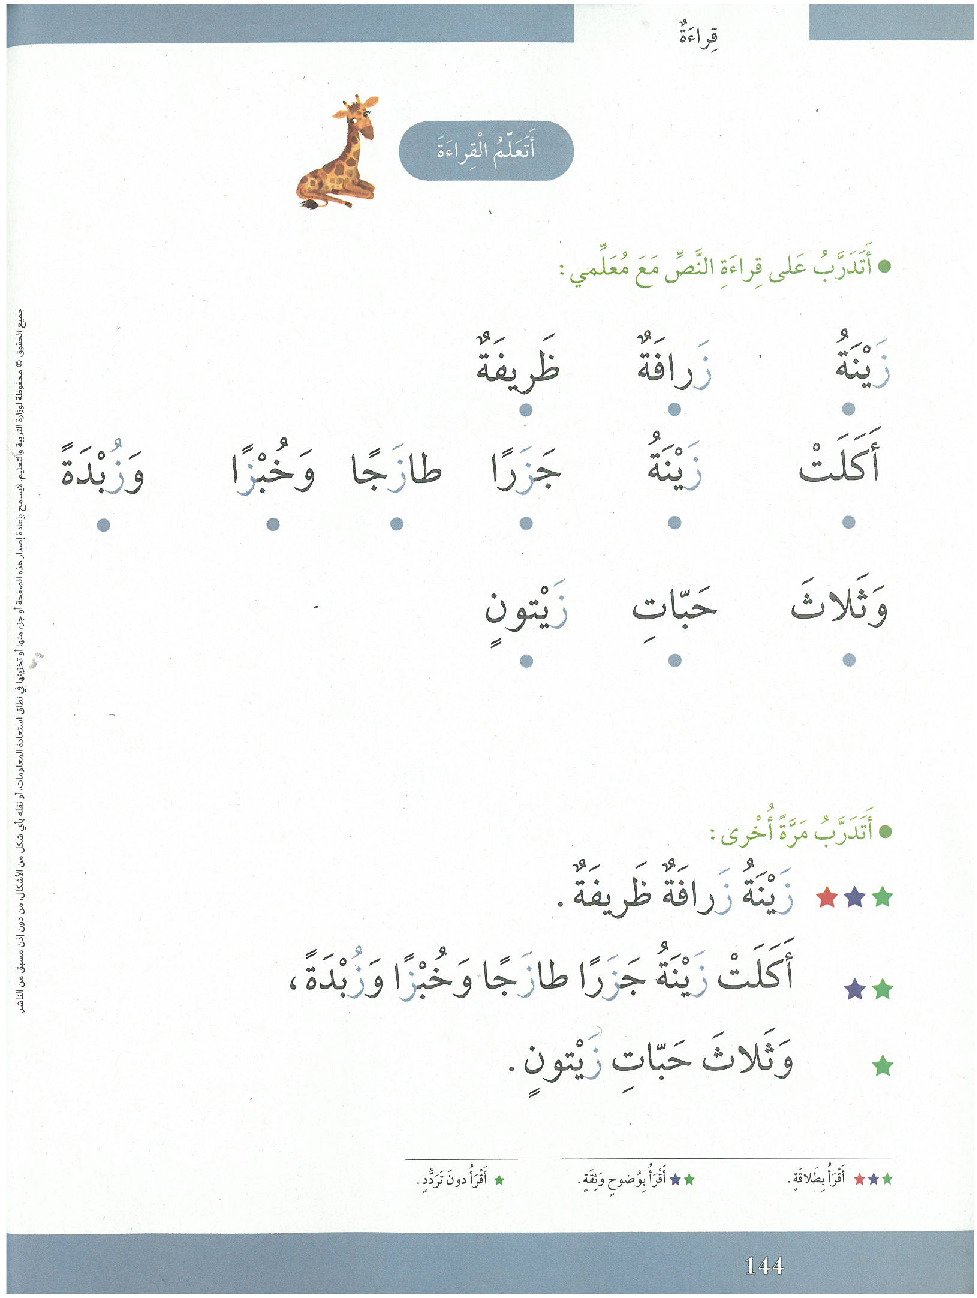 قِراءَةٌ
أَتَعَلَّمُ الْقِراءَةَ
● أَتَدَرَّبُ عَلى قِراءَةِ النَّصِّ مَعَ مُعَلِّمي:
زَيْنَةُ زَرافَةٌ ظَريفَةٌ
أَكَلَتْ زَيْنَةُ جَزَرًا طازَجًا وَخُبْزًا وَزُبْدَةً
وَثَلاثَ حَبّاتِ زَيْتونٍ
● أَتَدَرَّبُ مَرَّةً أُخْرى:
زَيْنَةُ زَرافَةٌ ظَريفَةٌ.
أَكَلَتْ زَيْنَةُ جَزَرًا طازَجًا وَخُبْزًا وَزُبْدَةً،
وَثَلاثَ حَبّاتِ زَيْتونٍ.
★★★ أَقْرَأُ بِطَلاقَةٍ. ★★ أَقْرَأُ بِوُضوحٍ وَثِقَةٍ. ★ أَقْرَأُ دونَ تَرَدُّدٍ.
144
جميع الحقوق © محفوظة لوزارة التربية والتعليم. لايسمح بإعادة إصدار هذه الصفحة أو جزء منها أو تخزينها في نطاق استعادة المعلومات، أو نقله بأي شكل من الأشكال، من دون إذن مسبق من الناشر